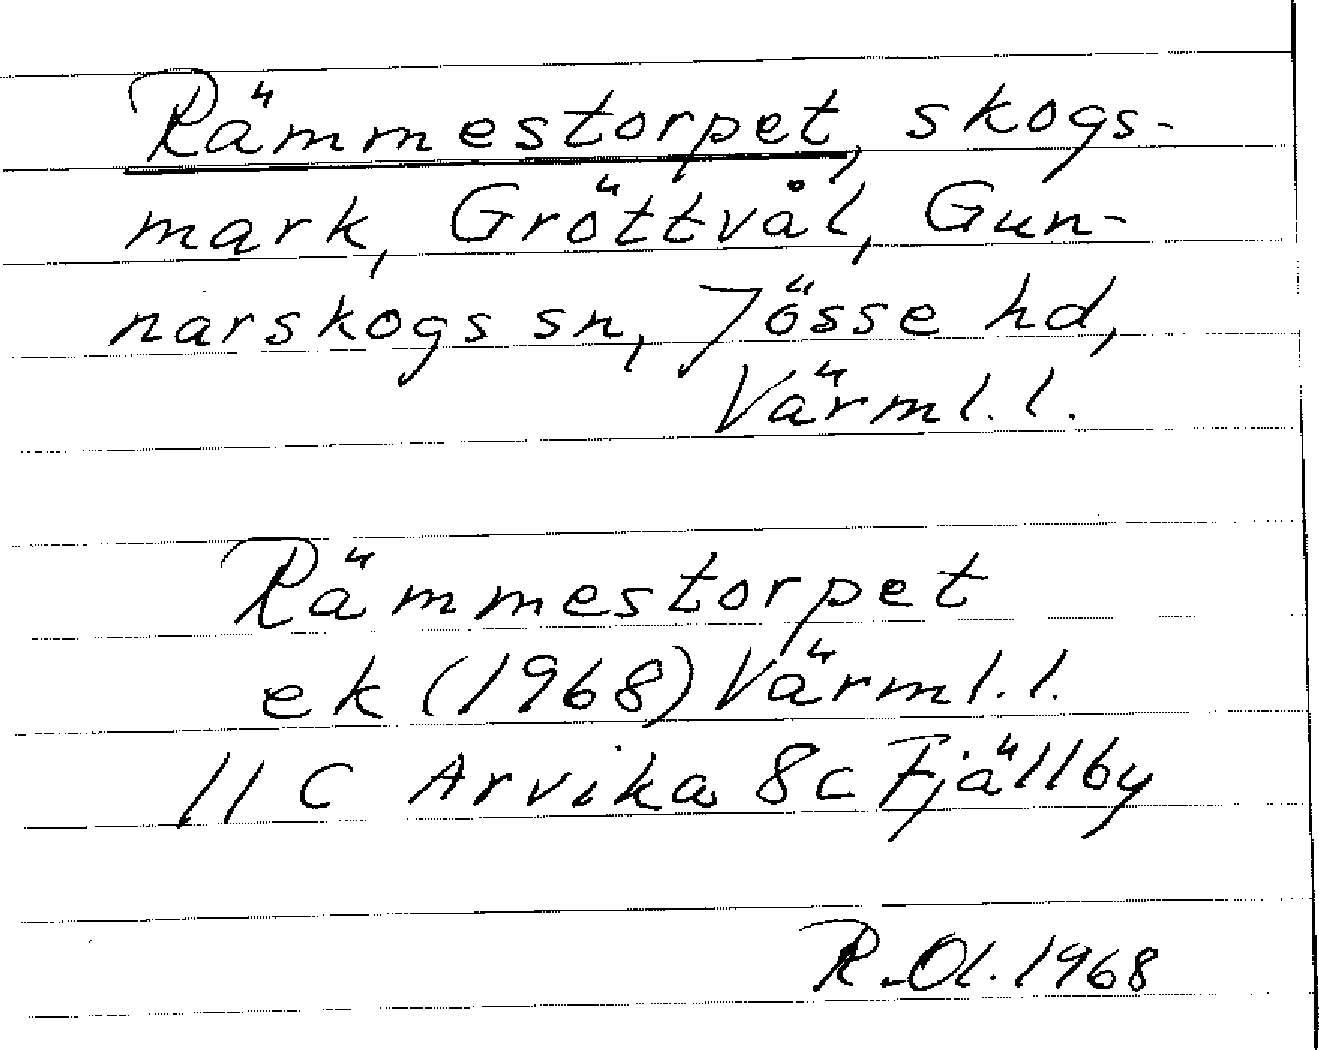 Rämmestorpet, skogs-
mark, Gröttvål, Gun-
narskogs sn, Jösse hd,
Värml.l.
Rämmestorpet
ek (1968) Värml.l.
11 C Arvika 8c Fjällby
R.Ol.1968